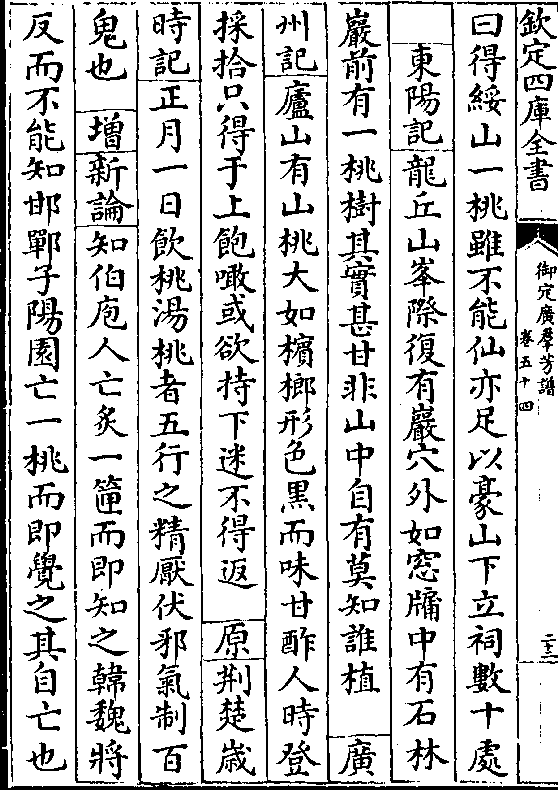 欽定四庫全書
御定廣羣芳譜
卷五十四
二十三
曰得綏山一桃雖不能仙亦足以豪山下立祠數十處
東陽記龍丘山峯際復有巖穴外如窓牖中有石林
巖前有一桃樹其實甚甘非山中自有莫知誰植　廣
州記廬山有山桃大如檳榔形色黑而味甘酢人時登
採拾只得于上飽噉或欲持下迷不得返　原荆楚嵗
時記正月一日飲桃湯桃者五行之精厭伏邪氣制百
鬼也　增新論知伯庖人亡炙一篋而即知之韓魏將
反而不能知邯鄲子陽園亡一桃而即覺之其自亡也